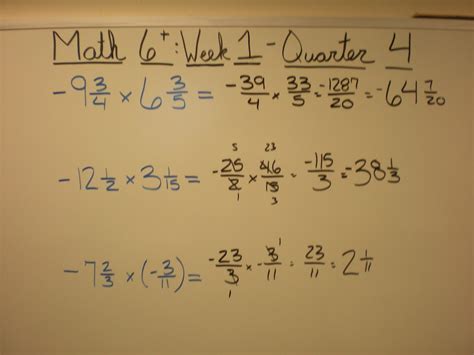 Math 6+: Week 1 - Quarter 4
-9 3/4 × 6 3/5 = -39/4 × 33/5 = -1287/20 = -64 7/20
5 23
-12 1/2 × 3 1/15 = -25/2 × 46/15 = -115/3 = -38 1/3
1 3
-7 2/3 × (-3/11) = -23/3 × -3/11 = 23/11 = 2 1/11
1 1